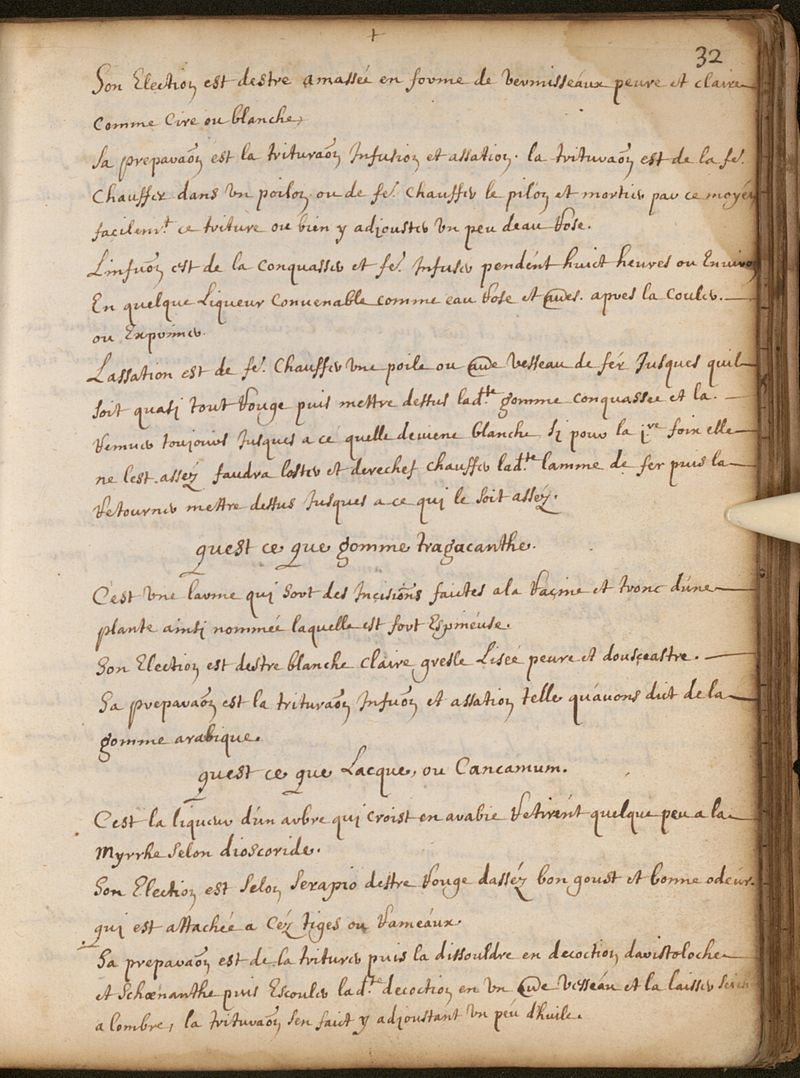 +
32
Son Election est destre amassée en forme de vermisseaux peure et claire
Comme Cire ou blanche,
Sa prepara͠on est la tritura͠on Infusion et assation. la tritura͠on est de la fe.
Chauffer dans Un poilon ou de fe. Chauffer le pilon et mortier par ce moyen
facilem.t ce triture ou bien y adjouster Un peu deau Rose.
Linfu͠on est de la Conquasser et fe. Infuser pendent huict heures ou Environ
En quelque Liqueur Convenable comme eau Rose et apres la Couler.
ou Exprimer.
Lassation est de fe. Chauffer Une poile ou vesseau de fer Jusques quil
soit quasi tout Rouge puis mettre dessus lad.te gomme conquassee et la.
Remuer toujours Jusques a ce quelle deviene blanche Si pour la j.re foix elle
ne lest assez faudra loster et derechef chauffer lad.te lamme de fer puis la
Retourner mettre dessus Jusques a ce qui le soit assez.
quest ce que gomme tragacanthe.
Cest Une larme qui sort des Incisio͠ns faictes a la Racine et tronc dune
plante ainsi nommée laquelle est fort Espineuse.
Son Election est destre blanche Claire gresle Liseé peure et dousceastre.
Sa prepara͠on est la tritura͠on Infu͠on et assation telle quavons dict de la
gomme arabique.
quest ce que Lacque, ou Cancamum.
Cest la liqueur dun arbre qui Croist en arabie Retirent quelque peu a la
Myrrhe Selon dioscoride.
Son Election est Selon Serapio destre Rouge dassez bon goust et bonne odeur.
qui est attachée a Cez tiges ou Rameaux.
Sa prepara͠on est de la triturer puis la dissouldre en decoction daristoloche
et Schœnanthe puis Escouler lad.te decoction en Un vesseau et la laisser
a lombre, la tritura͠on sen faict y adjoustant Un peu dhuile.